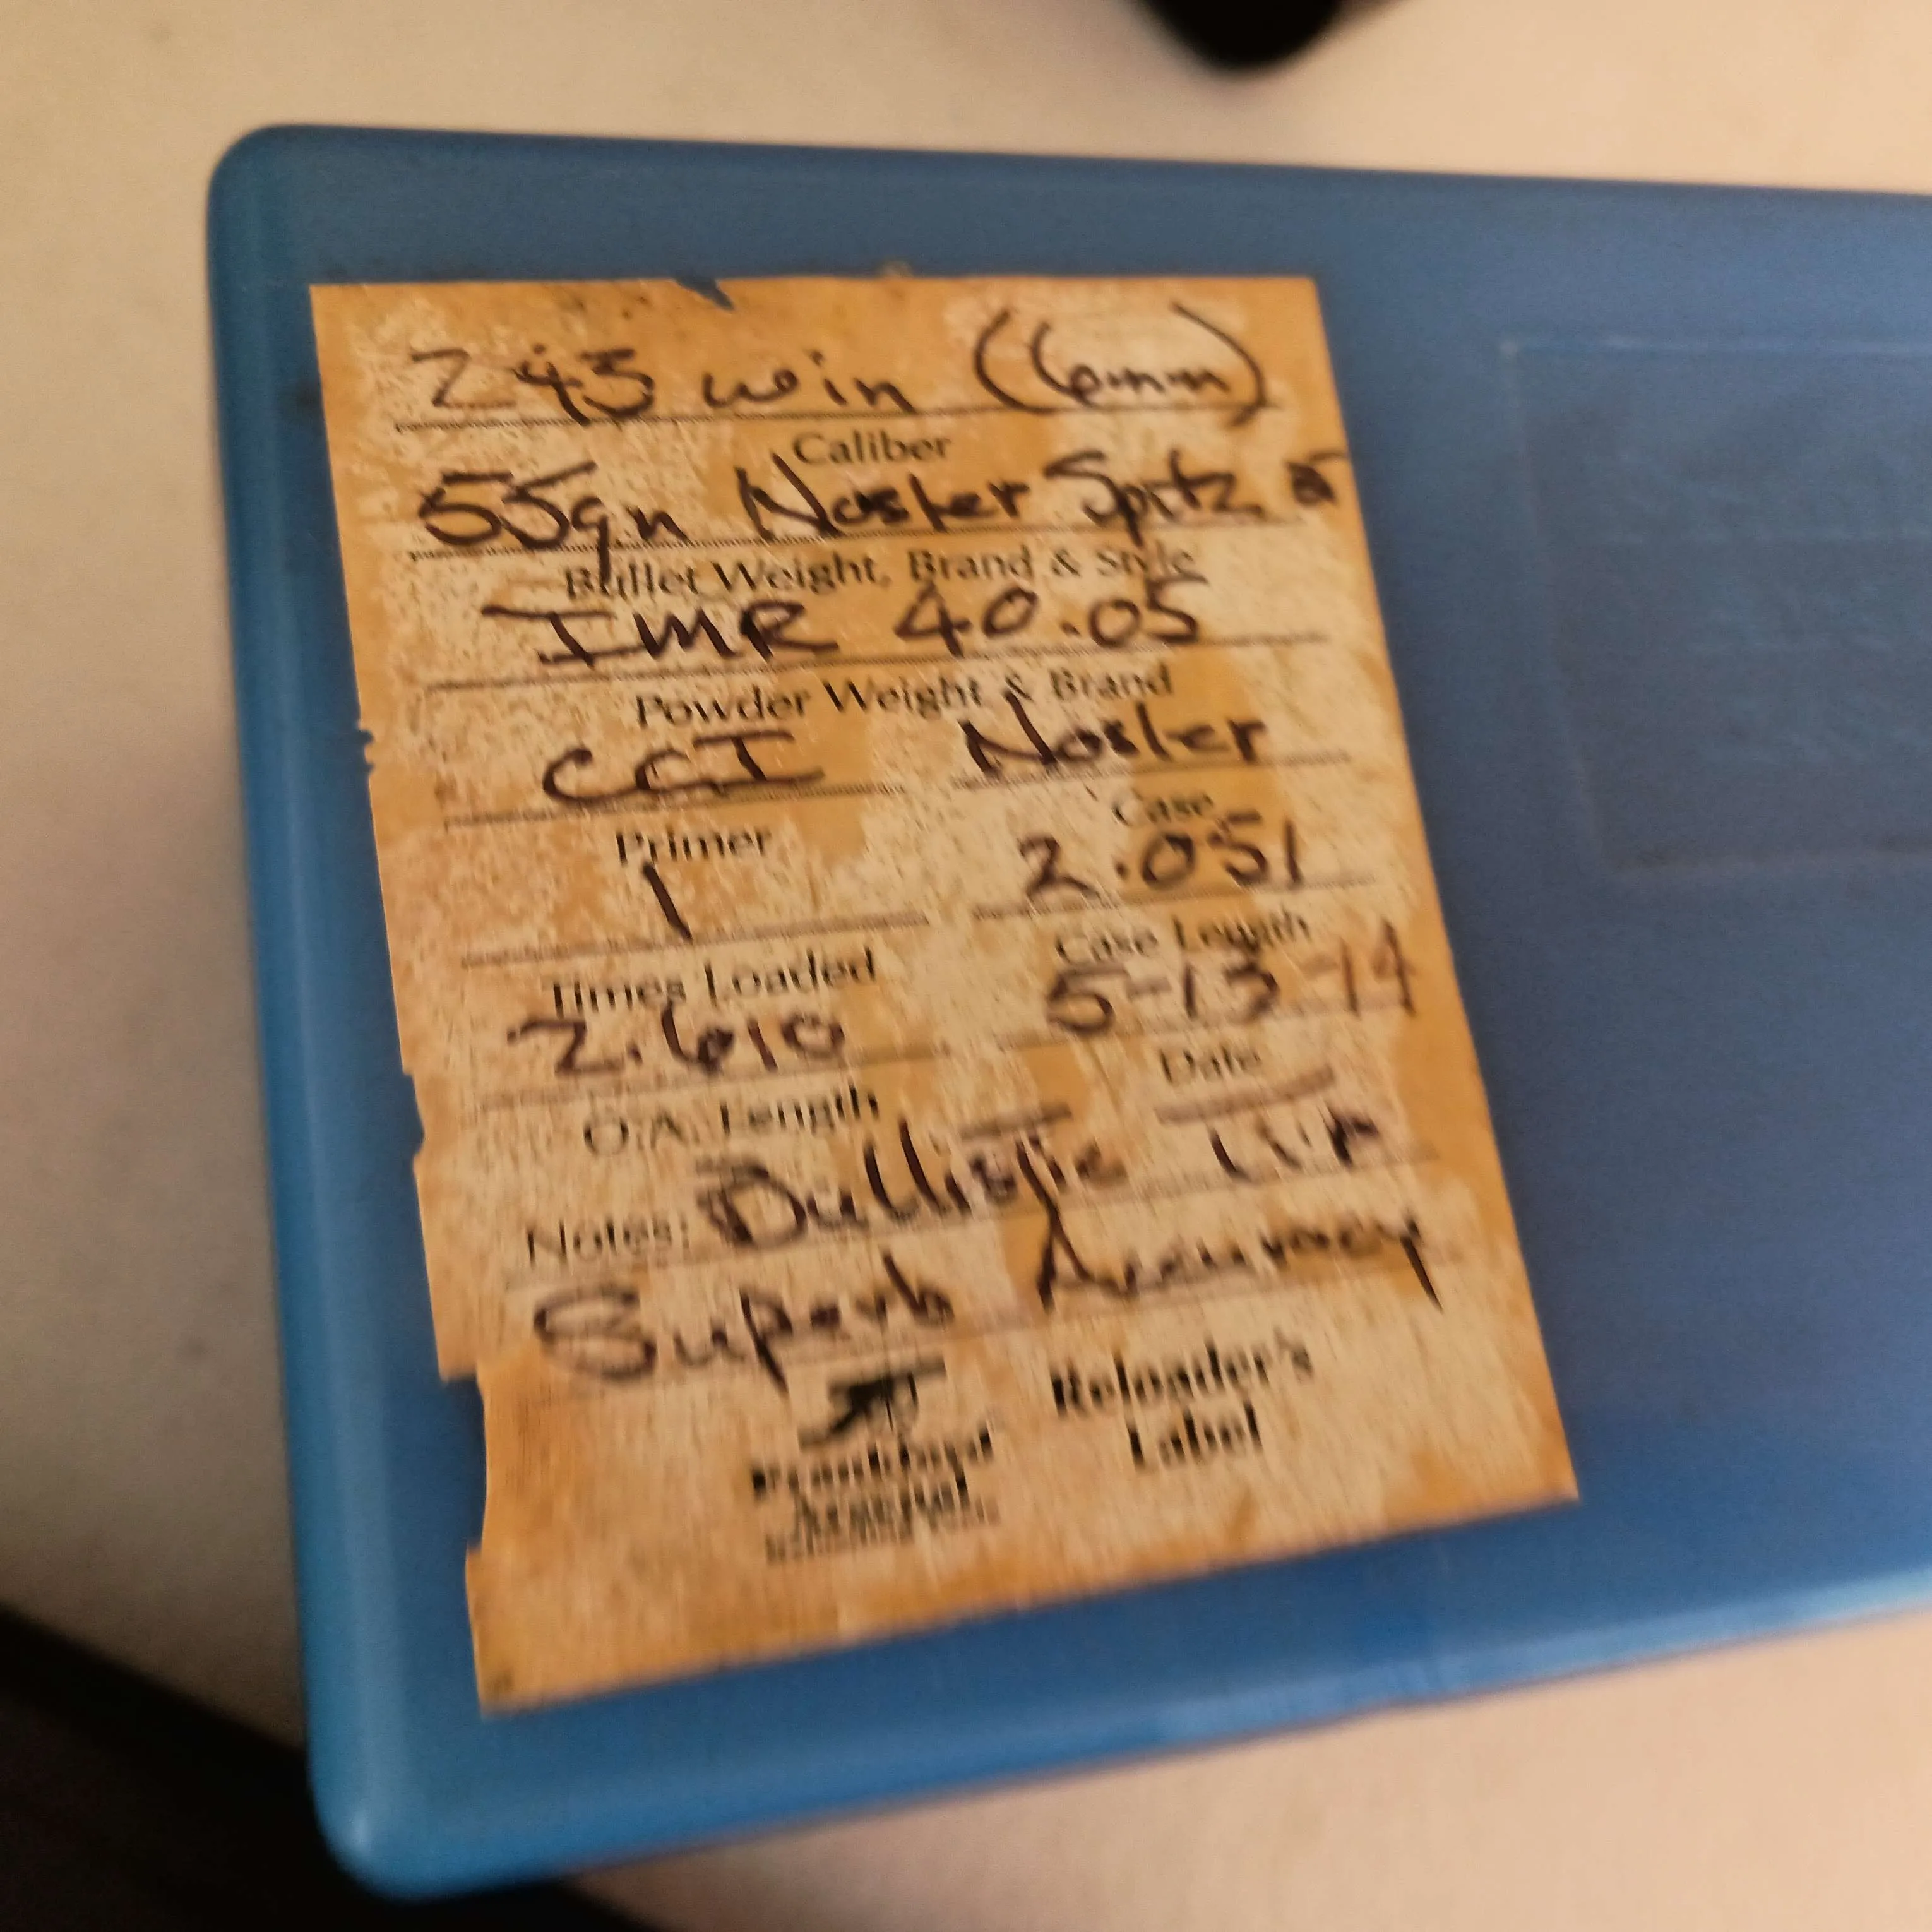 243 win (6mm)
Caliber
55gn Nosler Spitz
Bullet Weight, Brand & Style
IMR 40.05
Powder Weight & Brand
CCI Nosler
Primer Case
1 2.051
Times Loaded Case Length
2.610 5-13-14
O.A. Length Date
Notes: Bullistic Tip
Superb Accuracy
Frankford Arsenal
Reloader's
Label